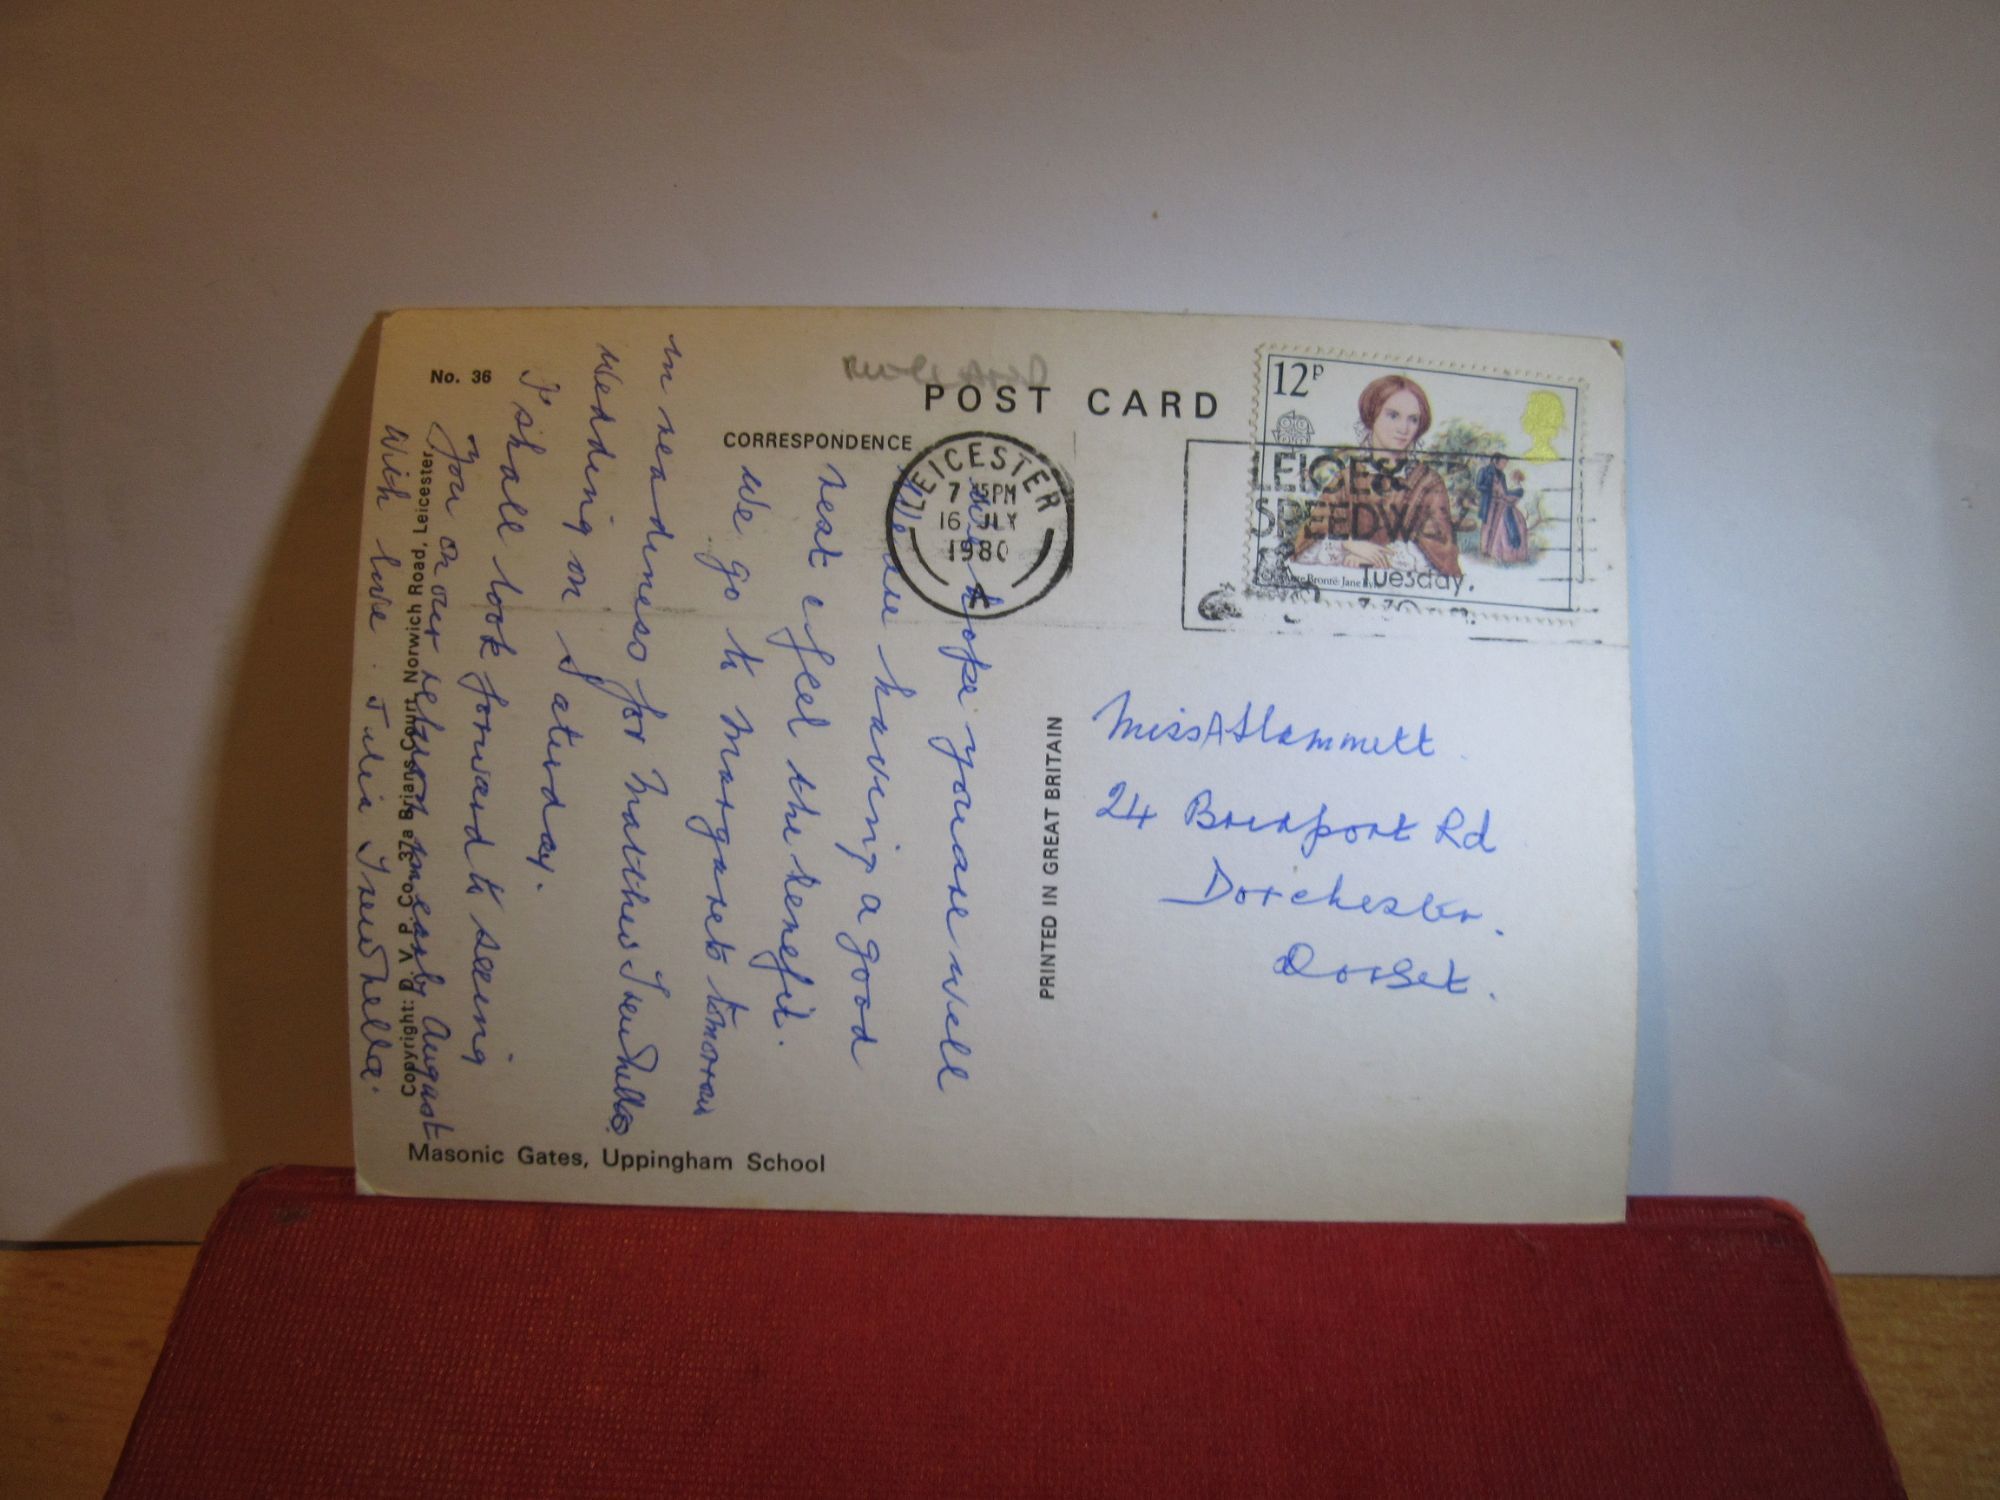 No. 36
RUTLAND
POST CARD
CORRESPONDENCE
LEICESTER
7 PM
16 JLY
1980
12P
LEICES
SPEEDWAY
Tuesday.
Brontë · Jane
we hope you are well
We are having a good
rest & feel the benefit.
We go to Margarets tomorrow
in readiness for Matthew
Wedding on Saturday.
I shall look forward to seeing
you on our return early August
With love.
Miss A Hammett
24 Rd
Dorchester.
Dorset.
PRINTED IN GREAT BRITAIN
Copyright: P. V. P. Co. 37a Brians Court, Norwich Road, Leicester
Masonic Gates, Uppingham School